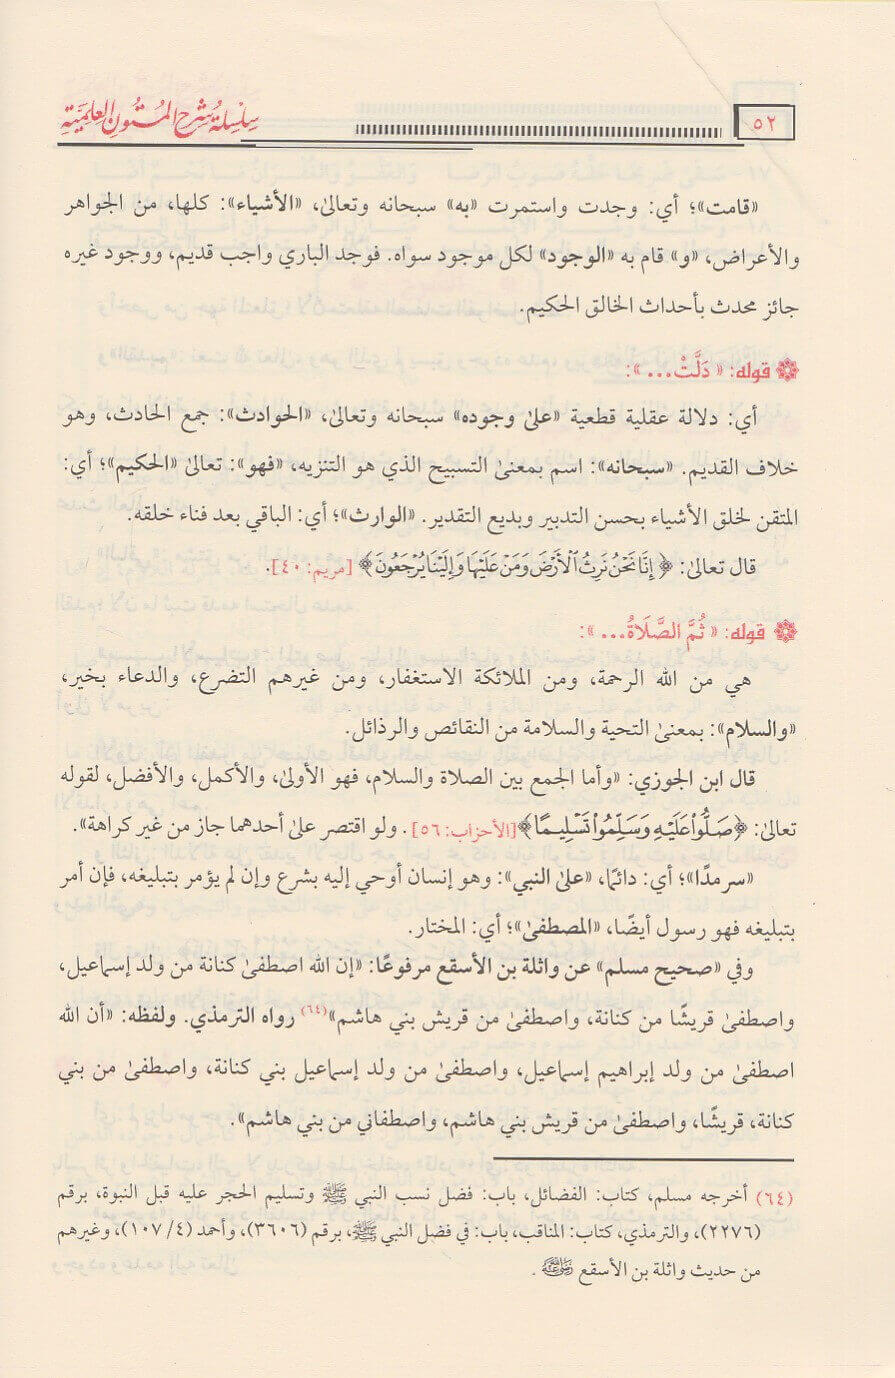 ٥٢
سلسلة شرح المتون العلمية
«قامت»؛ أي: وجدت واستمرت «به» سبحانه وتعالىٰ، «الأشياء»: كلها، من الجواهر
والأعراض، «و» قام به «الوجود» لكل موجود سواه. فوجد الباري واجب قديم، ووجود غيره
جائز محدث بأحداث الخالق الحكيم.
قوله: « دَلَّتْ... »:
أي: دلالة عقلية قطعية «علىٰ وجوده» سبحانه وتعالىٰ، «الحوادث»: جمع الحادث، وهو
خلاف القديم. «سبحانه»: اسم بمعنىٰ التسبيح الذي هو التنزيه، «فهو»: تعالىٰ «الحكيم»؛ أي:
المتقن لخلق الأشياء بحسن التدبير وبديع التقدير. «الوارث»؛ أي: الباقي بعد فناء خلقه.
قال تعالىٰ: ﴿إِنَّا نَحْنُ نَرِثُ ٱلْأَرْضَ وَمَنْ عَلَيْهَا وَإِلَيْنَا يُرْجَعُونَ﴾ [مريم: ٤٠].
قوله: « ثُمَّ الصَّلَاةُ... »:
هي من الله الرحمة، ومن الملائكة الاستغفار، ومن غيرهم التضرع، والدعاء بخير،
«والسلام»: بمعنىٰ التحية والسلامة من النقائص والرذائل.
قال ابن الجوزي: «وأما الجمع بين الصلاة والسلام، فهو الأولىٰ، والأكمل، والأفضل، لقوله
تعالىٰ: ﴿صَلُّوا۟ عَلَيْهِ وَسَلِّمُوا۟ تَسْلِيمًا﴾ [الأحزاب: ٥٦]. ولو اقتصر علىٰ أحدهما جاز من غير كراهة».
«سرمدًا»؛ أي: دائمًا، «علىٰ النبي»: وهو إنسان أوحي إليه بشرع وإن لم يؤمر بتبليغه، فإن أمر
بتبليغه فهو رسول أيضًا، «المصطفىٰ»؛ أي: المختار.
وفي «صحيح مسلم» عن واثلة بن الأسقع مرفوعًا: «إن الله اصطفىٰ كنانة من ولد إسماعيل،
واصطفىٰ قريشًا من كنانة، واصطفىٰ من قريش بني هاشم»(٦٤) رواه الترمذي. ولفظه: «أن الله
اصطفىٰ من ولد إبراهيم إسماعيل، واصطفىٰ من ولد إسماعيل بني كنانة، واصطفىٰ من بني
كنانة، قريشًا، واصطفىٰ من قريش بني هاشم، واصطفاني من بني هاشم».
(٦٤) أخرجه مسلم، كتاب: الفضائل، باب: فضل نسب النبي ﷺ وتسليم الحجر عليه قبل النبوة، برقم
(٢٢٧٦)، والترمذي، كتاب: المناقب، باب: في فضل النبي ﷺ، برقم (٣٦٠٦)، وأحمد (٤/ ١٠٧)، وغيرهم
من حديث واثلة بن الأسقع رضي الله عنه.